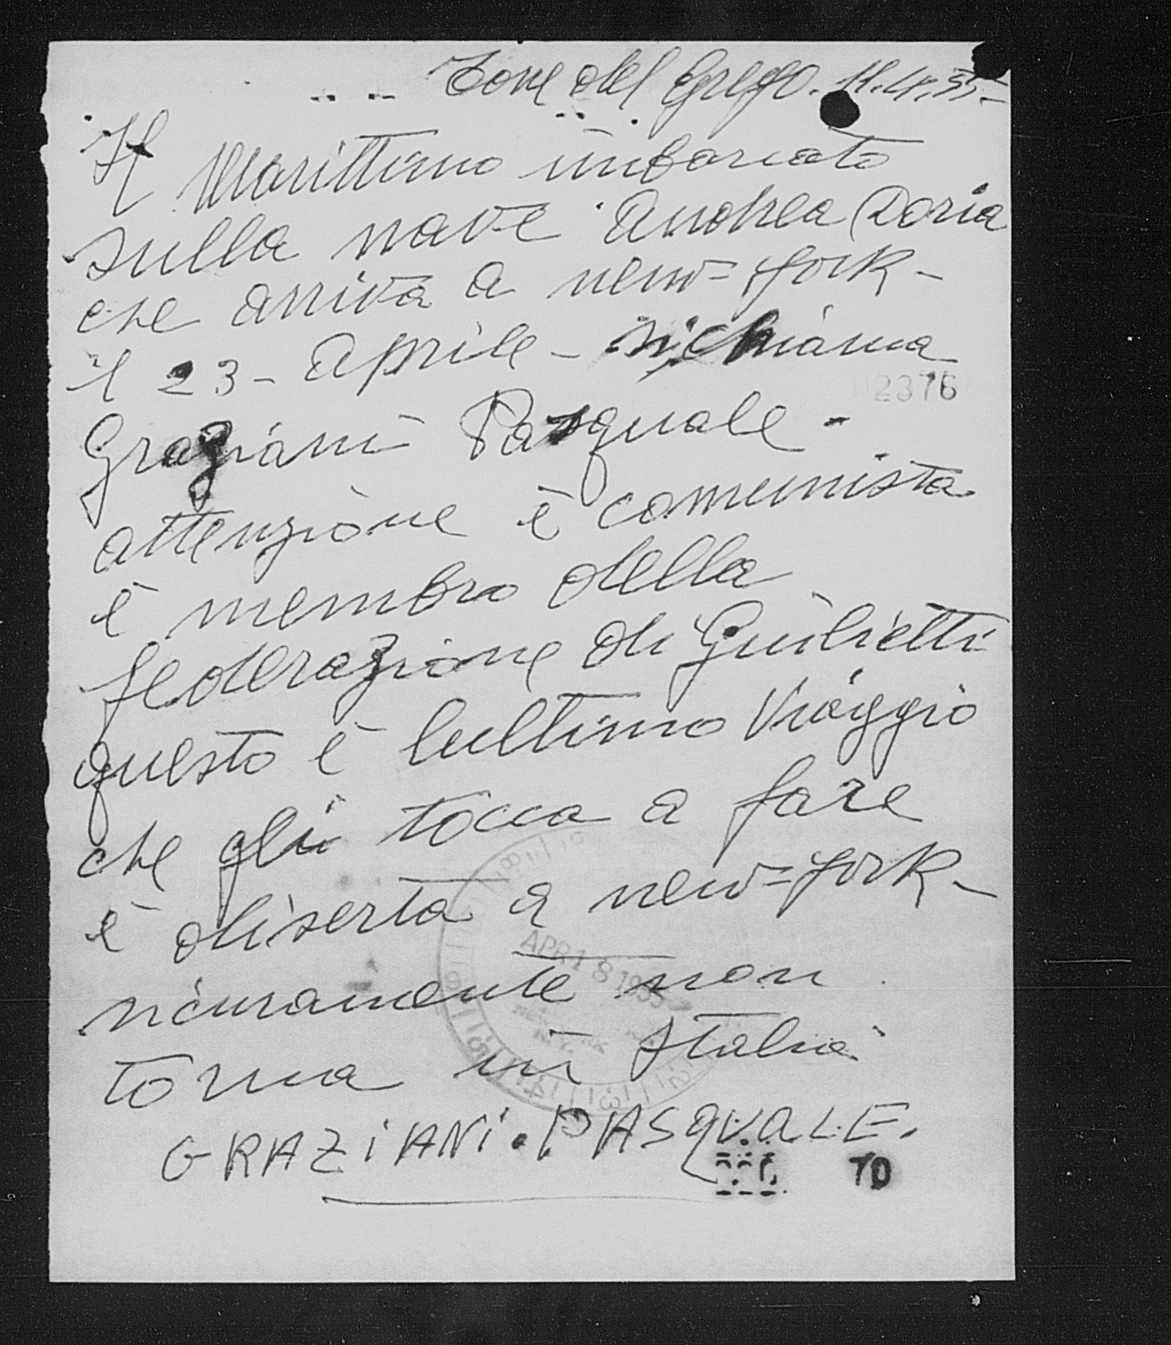 Torre del Greco. 11.4.55-
Il Marittimo inbarcato
sulla nave Andrea Doria
che arriva a new=york-
il 23- aprile - si chiama
2376
Graziani Pasquale -
attenzione è comunista
è membro della
federazione di Giulietti
questo è lultimo viaggio
che gli tocca a fare
è diserta a new=york-
sicuramente non
APR 18 1955
torna in Italia
GRAZiANi. PASQUALE.
TD